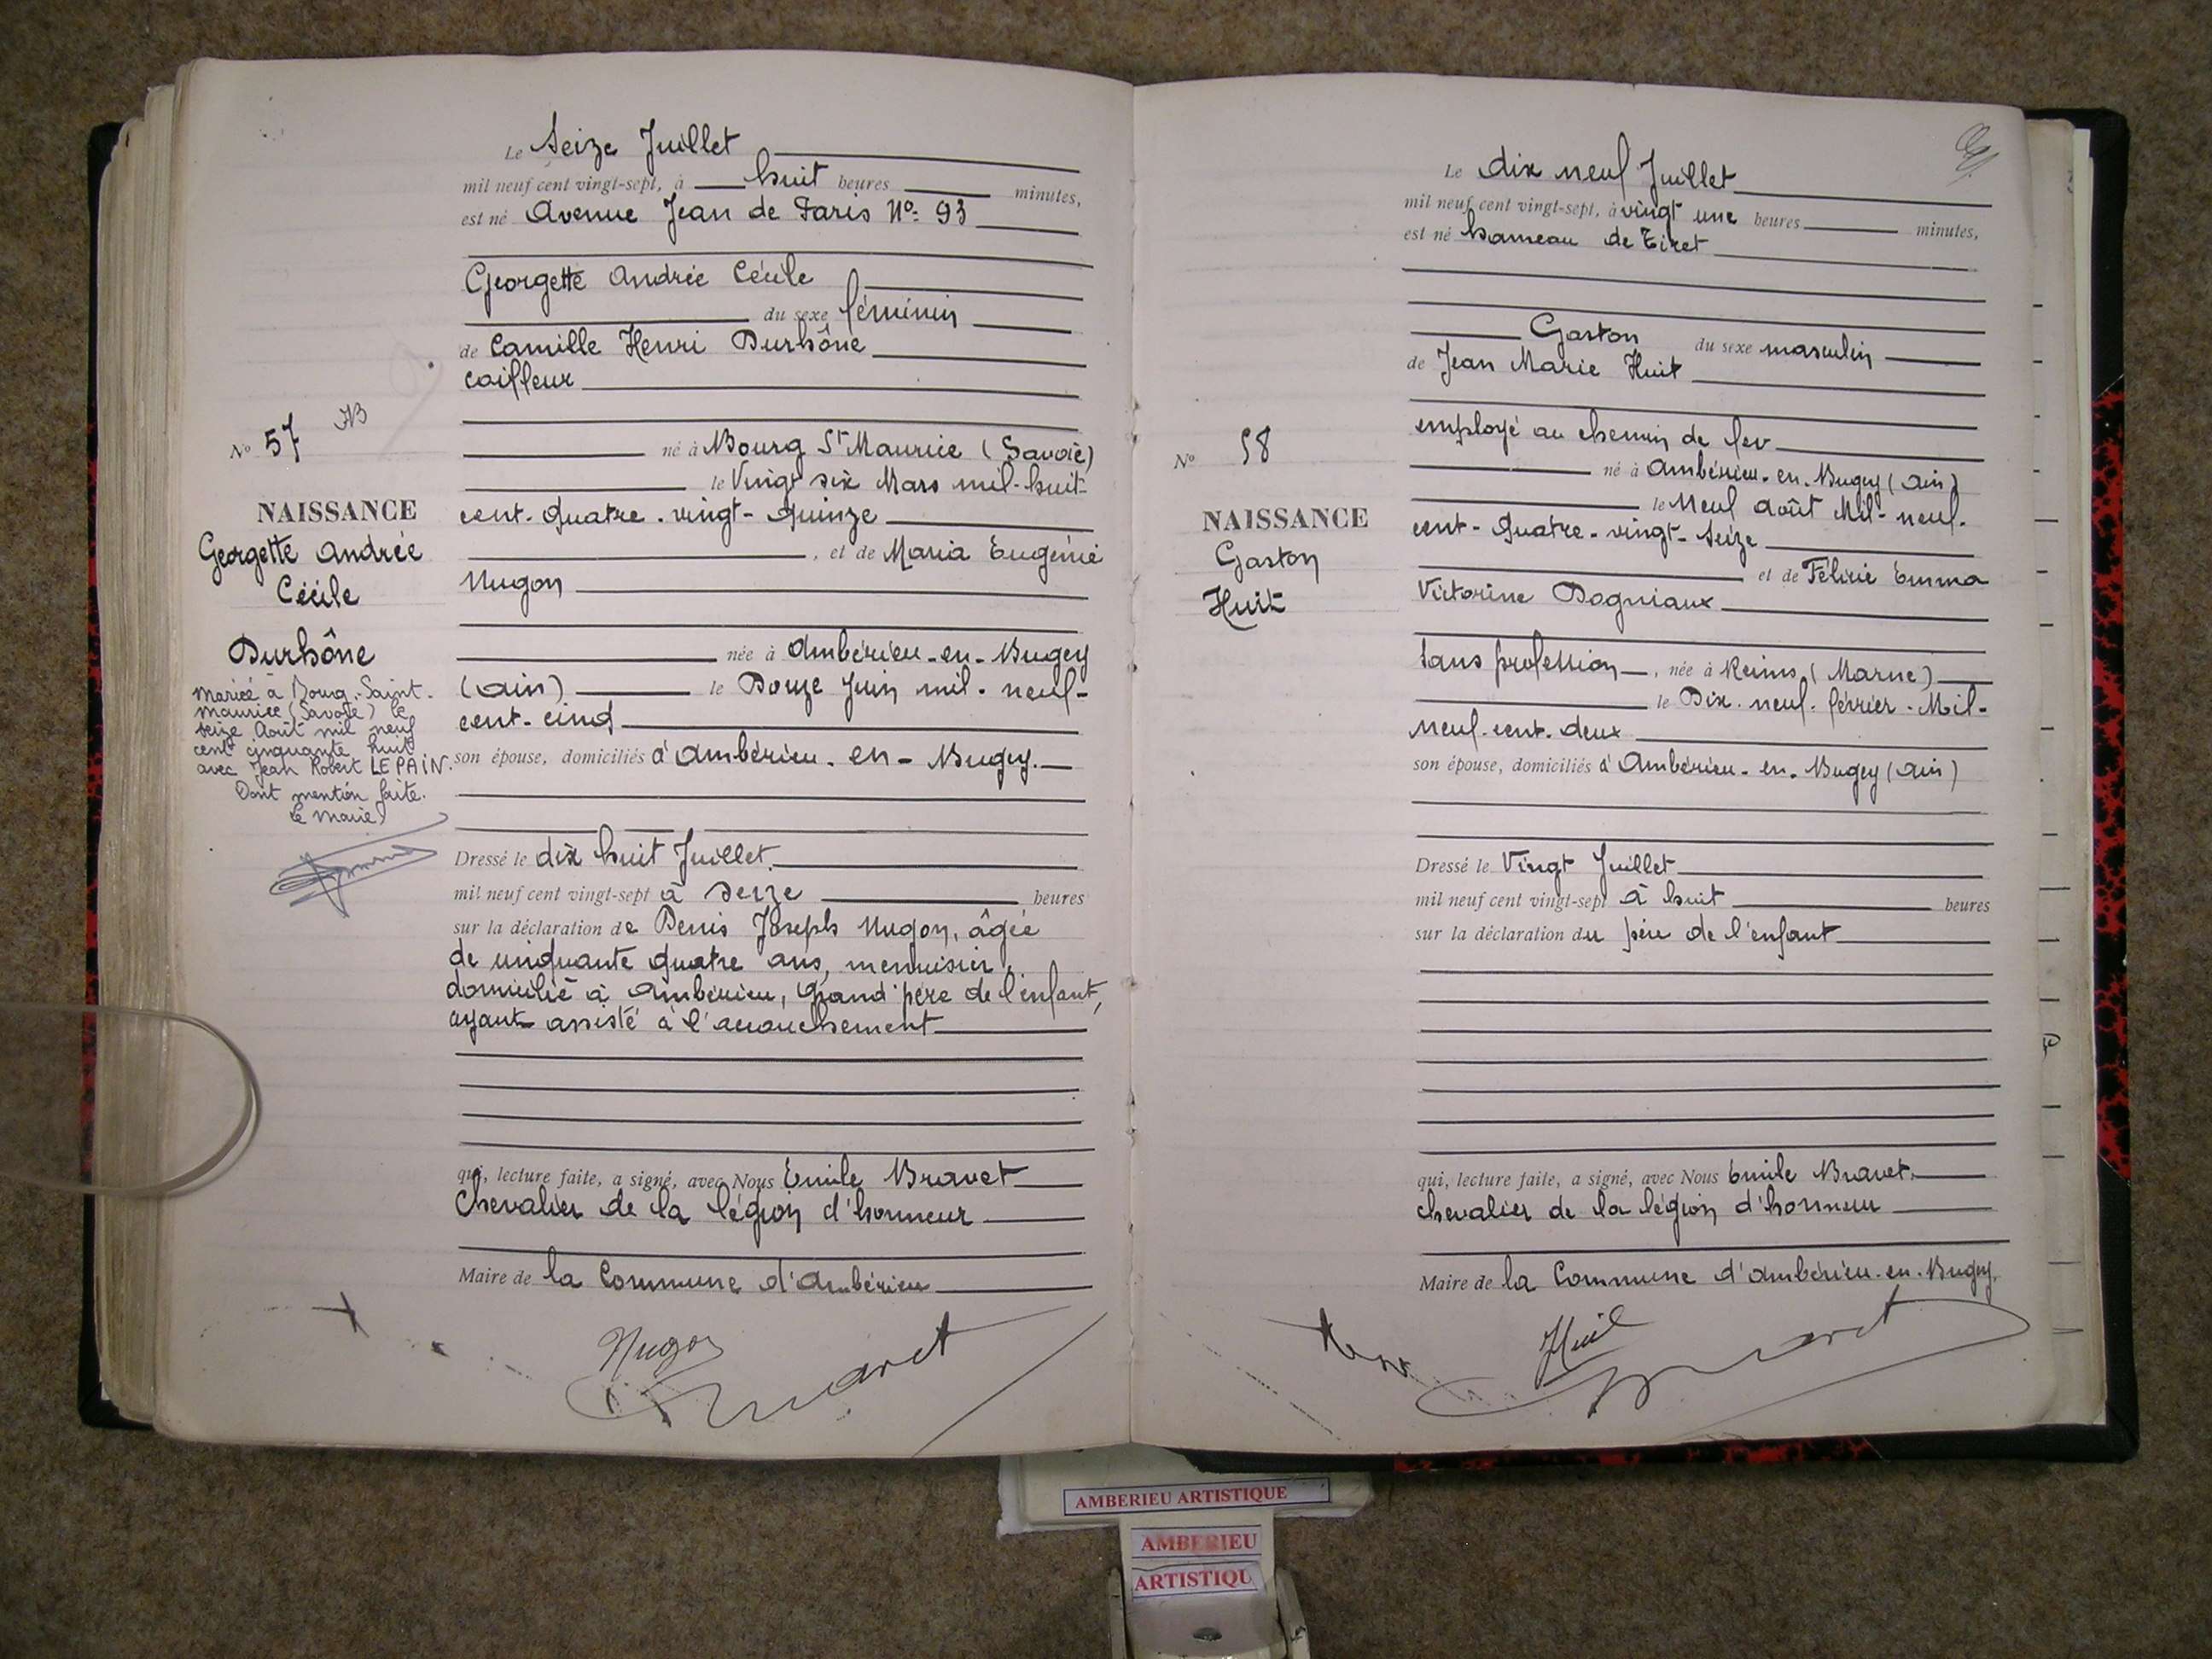 Le Seize Juillet
mil neuf cent vingt-sept, à huit heures minutes,
est né Avenue Jean de Paris No: 93
Georgette Andrée Cécile
du sexe féminin
de Camille Henri Durhône
coiffeur
né à Bourg St Maurice (Savoie)
le Vingt six Mars mil-huit-
cent-quatre-vingt-quinze
, et de Maria Eugénie
Nugon
née à Ambérieu-en-Bugey
(Ain) le Douze Juin mil-neuf-
cent-cinq
son épouse, domiciliés à Ambérieu-en-Bugey.
Dressé le dix huit Juillet
mil neuf cent vingt-sept à seize heures
sur la déclaration de Denis Joseph Nugon, âgée
de cinquante quatre ans, menuisier,
domicilié à Ambérieu, Grand'père de l'enfant,
ayant assisté à l'accouchement
qui, lecture faite, a signé, avec Nous Emile Bravet
Chevalier de la légion d'honneur
Maire de la Commune d'Ambérieu
Nugon
Bravet
No 57
NAISSANCE
Georgette Andrée
Cécile
Durhône
Mariée à Bourg-Saint-
Maurice (Savoie) le
seize Août mil neuf
cent cinquante huit
avec Jean Robert LEPAIN.
Dont mention faite.
Le Maire
Le dix neuf Juillet
mil neuf cent vingt-sept, à vingt une heures minutes,
est né hameau de Tiret
Gaston du sexe masculin
de Jean Marie Huit
employé au chemin de fer
né à Ambérieu-en-Bugey (Ain)
le Neuf Août Mil-neuf-
cent-quatre-vingt-seize
et de Félicie Emma
Victorine Dogniaux
sans profession, née à Reims (Marne)
le Dix-neuf-février-Mil-
neuf-cent-deux
son épouse, domiciliés à Ambérieu-en-Bugey (Ain)
Dressé le Vingt Juillet
mil neuf cent vingt-sept à huit heures
sur la déclaration du père de l'enfant
qui, lecture faite, a signé, avec Nous Emile Bravet,
chevalier de la légion d'honneur
Maire de la Commune d'Ambérieu-en-Bugey.
Huit
Bravet
No 58
NAISSANCE
Gaston
Huit
AMBERIEU ARTISTIQUE
AMBERIEU
ARTISTIQU